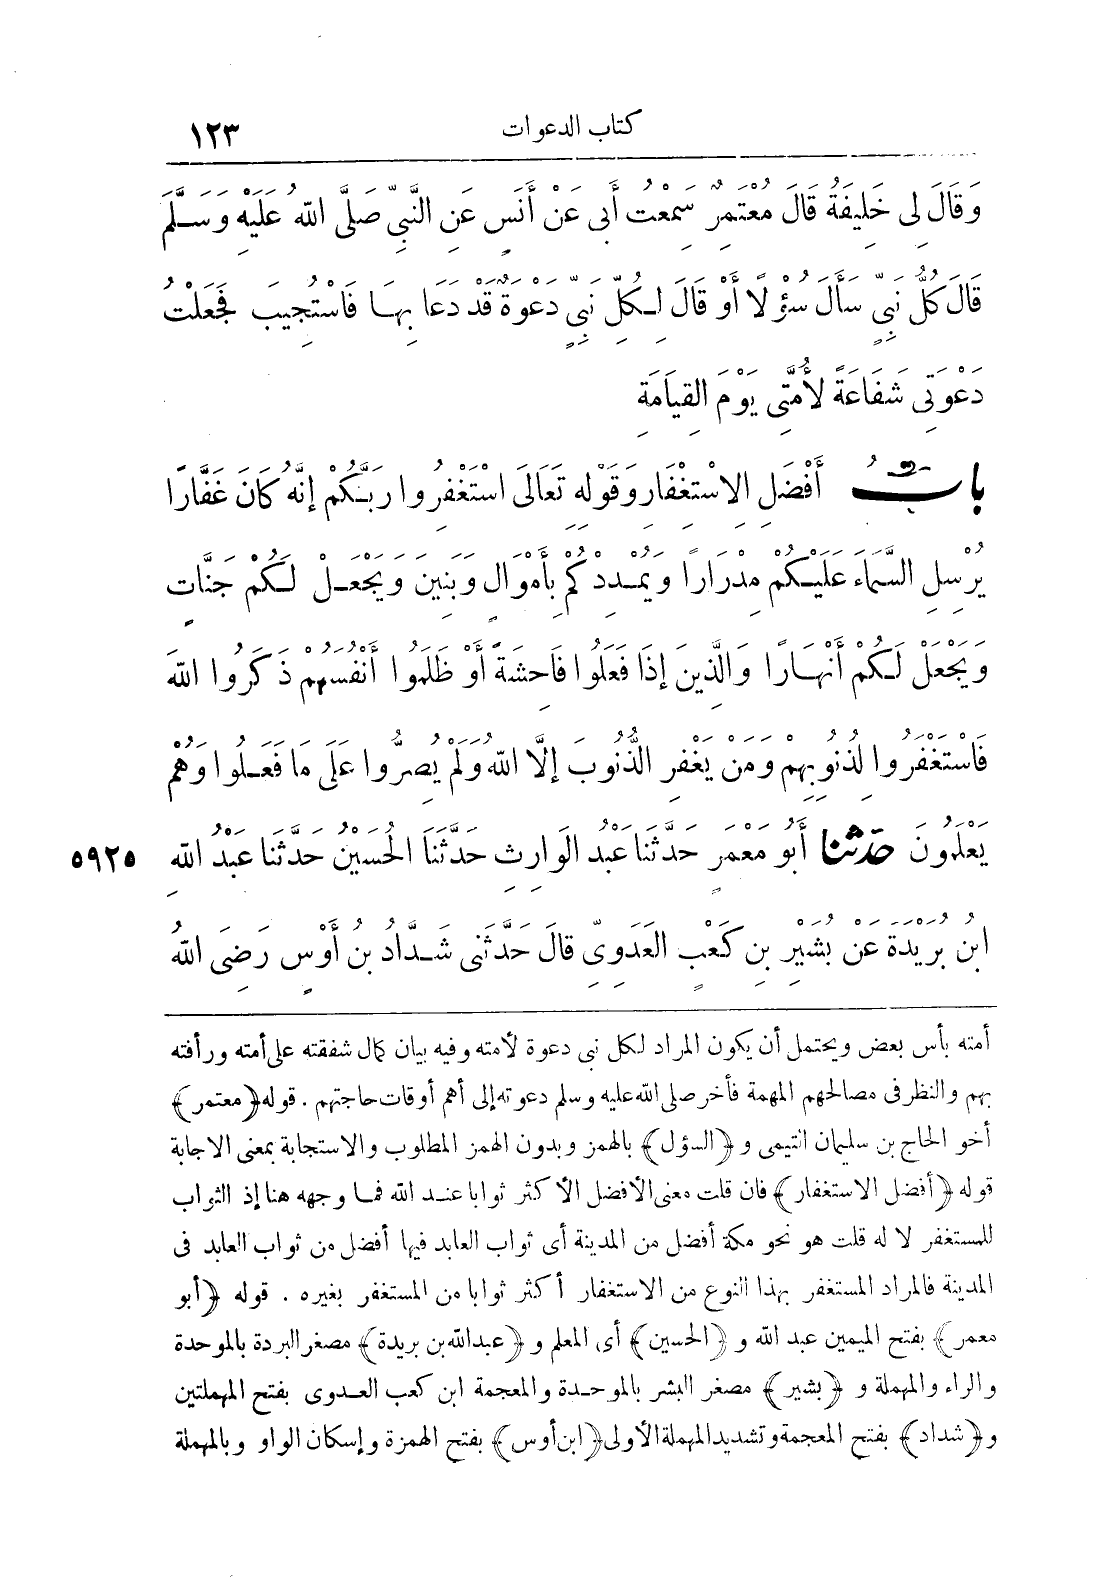 ١٢٣ كتاب الدعوات
وَقَالَ لِي خَلِيفَةُ قَالَ مُعْتَمِرٌ سَمِعْتُ أَبِي عَنْ أَنَسٍ عَنِ النَّبِيِّ صَلَّى اللهُ عَلَيْهِ وَسَلَّمَ
قَالَ كُلُّ نَبِيٍّ سَأَلَ سُؤْلًا أَوْ قَالَ لِكُلِّ نَبِيٍّ دَعْوَةٌ قَدْ دَعَا بِهَا فَاسْتُجِيبَ فَجَعَلْتُ
دَعْوَتِي شَفَاعَةً لِأُمَّتِي يَوْمَ القِيَامَةِ
بَابُ أَفْضَلِ الِاسْتِغْفَارِ وَقَوْلِهِ تَعَالَى اسْتَغْفِرُوا رَبَّكُمْ إِنَّهُ كَانَ غَفَّارًا
يُرْسِلِ السَّمَاءَ عَلَيْكُمْ مِدْرَارًا وَيُمْدِدْكُمْ بِأَمْوَالٍ وَبَنِينَ وَيَجْعَلْ لَكُمْ جَنَّاتٍ
وَيَجْعَلْ لَكُمْ أَنْهَارًا وَالَّذِينَ إِذَا فَعَلُوا فَاحِشَةً أَوْ ظَلَمُوا أَنْفُسَهُمْ ذَكَرُوا اللهَ
فَاسْتَغْفَرُوا لِذُنُوبِهِمْ وَمَنْ يَغْفِرُ الذُّنُوبَ إِلَّا اللهُ وَلَمْ يُصِرُّوا عَلَى مَا فَعَلُوا وَهُمْ
يَعْلَمُونَ حَدَّثَنَا أَبُو مَعْمَرٍ حَدَّثَنَا عَبْدُ الوَارِثِ حَدَّثَنَا الحُسَيْنُ حَدَّثَنَا عَبْدُ اللهِ ٥٩٢٥
ابْنُ بُرَيْدَةَ عَنْ بُشَيْرِ بنِ كَعْبٍ العَدَوِيِّ قَالَ حَدَّثَنِي شَدَّادُ بنُ أَوْسٍ رَضِيَ اللهُ
أمته بأس بعض ويحتمل أن يكون المراد لكل نبي دعوة لأمته وفيه بيان كمال شفقته على أمته ورأفته
بهم والنظر في مصالحهم المهمة فأخر صلى الله عليه وسلم دعوته إلى أهم أوقات حاجتهم . قوله ﴿معتمر﴾
أخو الحاج بن سليمان التيمي و ﴿السؤل﴾ بالهمز وبدون الهمز المطلوب والاستجابة بمعنى الاجابة
قوله ﴿أفضل الاستغفار﴾ فان قلت معنى الأفضل الأكثر ثوابا عند الله فما وجهه هنا إذ الثواب
للمستغفر لا له قلت هو نحو مكة أفضل من المدينة أى ثواب العابد فيها أفضل من ثواب العابد فى
المدينة فالمراد المستغفر بهذا النوع من الاستغفار أكثر ثوابا من المستغفر بغيره . قوله ﴿أبو
معمر﴾ بفتح الميمين عبد الله و ﴿الحسين﴾ أى المعلم و ﴿عبدالله بن بريدة﴾ مصغر البردة بالموحدة
والراء والمهملة و ﴿بشير﴾ مصغر البشر بالموحدة والمعجمة ابن كعب العدوى بفتح المهملتين
و ﴿شداد﴾ بفتح المعجمة وتشديد المهملة الأولى ﴿ابن أوس﴾ بفتح الهمزة وإسكان الواو وبالمهملة